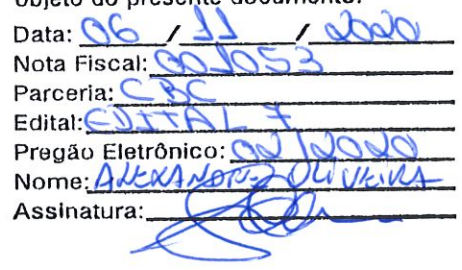 objeto do presente documento.
Data: 06 / 11 / 2020
Nota Fiscal: 001053
Parceria: CBC
Edital: EDITAL 7
Pregão Eletrônico: 02/2020
Nome: ALEXANDRE OLIVEIRA
Assinatura: